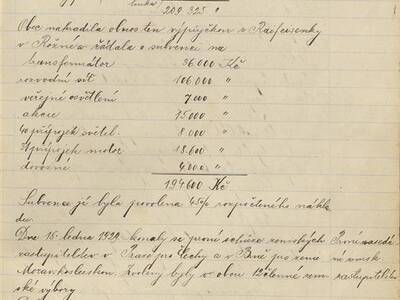 209.325 "
Obec nahradila obnos ten výpůjčkou z Raifeisenky
v Rožné a žádala o subvenci na
transformátor 36000 Kč
rozvodní síť 106.000 "
veřejné osvětlení 7000 "
akce 15000 "
přípojek světel. 8.000 "
přípojek motor 18.600 "
dovozné 4.000 "
194600 Kč
Subvence jí byla povolena 45% rozpočteného nákla-
du.
Dne 15. ledna 1929 konaly se první schůze zemských První zasedá
zastupitelstev v Praze pro Čechy a v Brně pro zemi
Moravskoslezskou. Zvoleny byly v obou 12ti členné zem. zastupitelstev
ské výbory